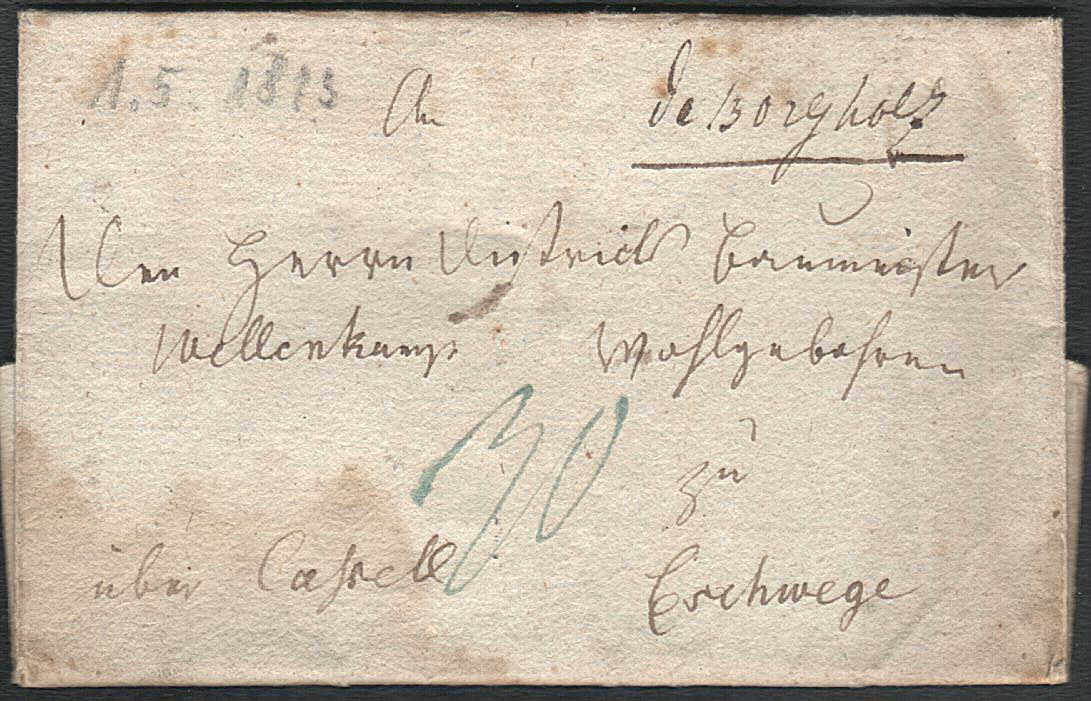 1.5.1813
An de Borgholz
Den Herrn District Baumeister
Wellenkamp Wohlgebohren
30
zu
über Cassell Eschwege